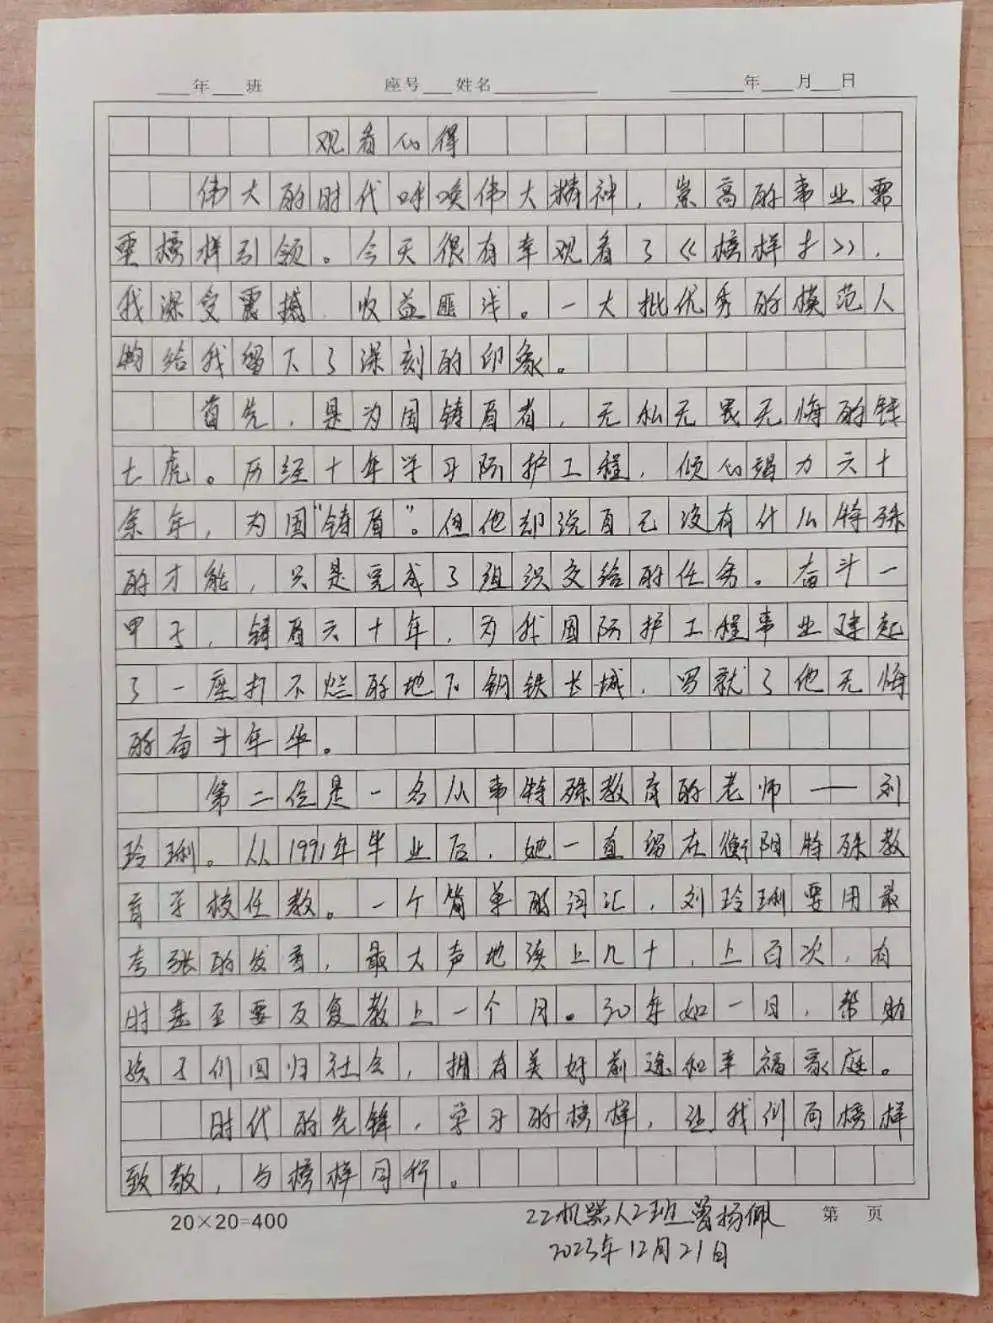 ___年___班 座号___姓名__________ ________年___月___日
观看心得
伟大的时代呼唤伟大精神，崇高的事业需
要榜样引领。今天很有幸观看了《榜样》，
我深受震撼，收益匪浅。一大批优秀的模范人
给我留下了深刻的印象。
首先，是为国铸盾者，无私无畏无悔的钱
七虎。历经十年学习防护工程，倾心竭力六十
余年，为国“铸盾”。但他却说自己没有什么特殊
的才能，只是完成了组织交给的任务。奋斗一
甲子，铸盾六十年，为我国防护工程事业建起
了一座打不烂的地下钢铁长城，写就了他无悔
的奋斗年华。
第二位是一名从事特殊教育的老师——刘
玲琍。从1991年毕业后，她一直留在衡阳特殊教
育学校任教。一个简单的词汇，刘玲琍要用最
夸张的发音，最大声地读上几十，上百次，有
时甚至要反复教上一个月。30年如一日，帮助
孩子们回归社会，拥有美好前途和幸福家庭。
时代的先锋，学习的榜样，让我们向榜样
致敬，与榜样同行。
20×20=400 22机器人2班曾杨佩 第 页
2023年12月21日